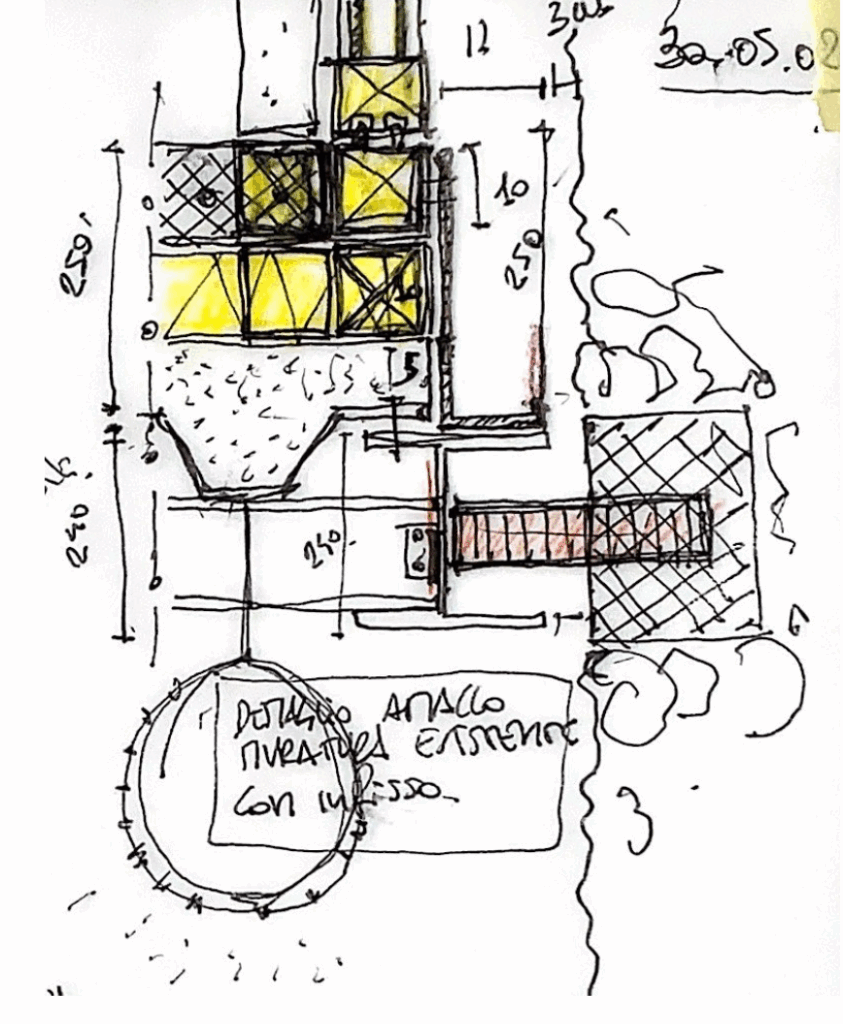 12
30.05.02
10
250
250
5
240
240
DETTAGLIO ATTACCO
MURATURA ESISTENTE
CON INGRESSO
3